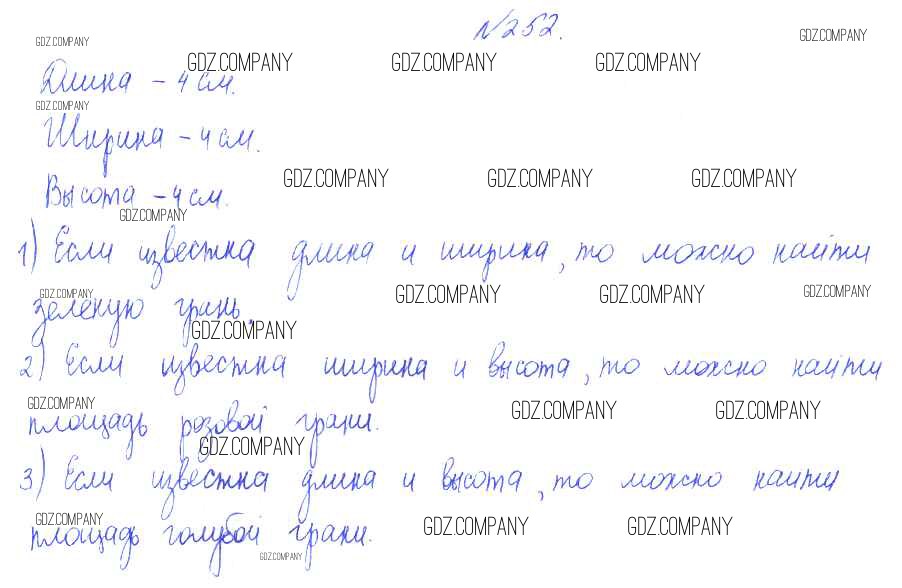 №252.
GDZ.COMPANY
GDZ.COMPANY GDZ.COMPANY GDZ.COMPANY GDZ.COMPANY
Длина - 4 см.
GDZ.COMPANY
Ширина - 4 см.
GDZ.COMPANY GDZ.COMPANY GDZ.COMPANY
Высота - 4 см.
GDZ.COMPANY
1) Если известна длина и ширина, то можно найти
GDZ.COMPANY GDZ.COMPANY GDZ.COMPANY GDZ.COMPANY
зеленую грань.
GDZ.COMPANY
2) Если известна ширина и высота, то можно найти
GDZ.COMPANY GDZ.COMPANY GDZ.COMPANY
площадь розовой грани.
GDZ.COMPANY
3) Если известна длина и высота, то можно найти
GDZ.COMPANY GDZ.COMPANY GDZ.COMPANY
площадь голубой грани.
GDZ.COMPANY